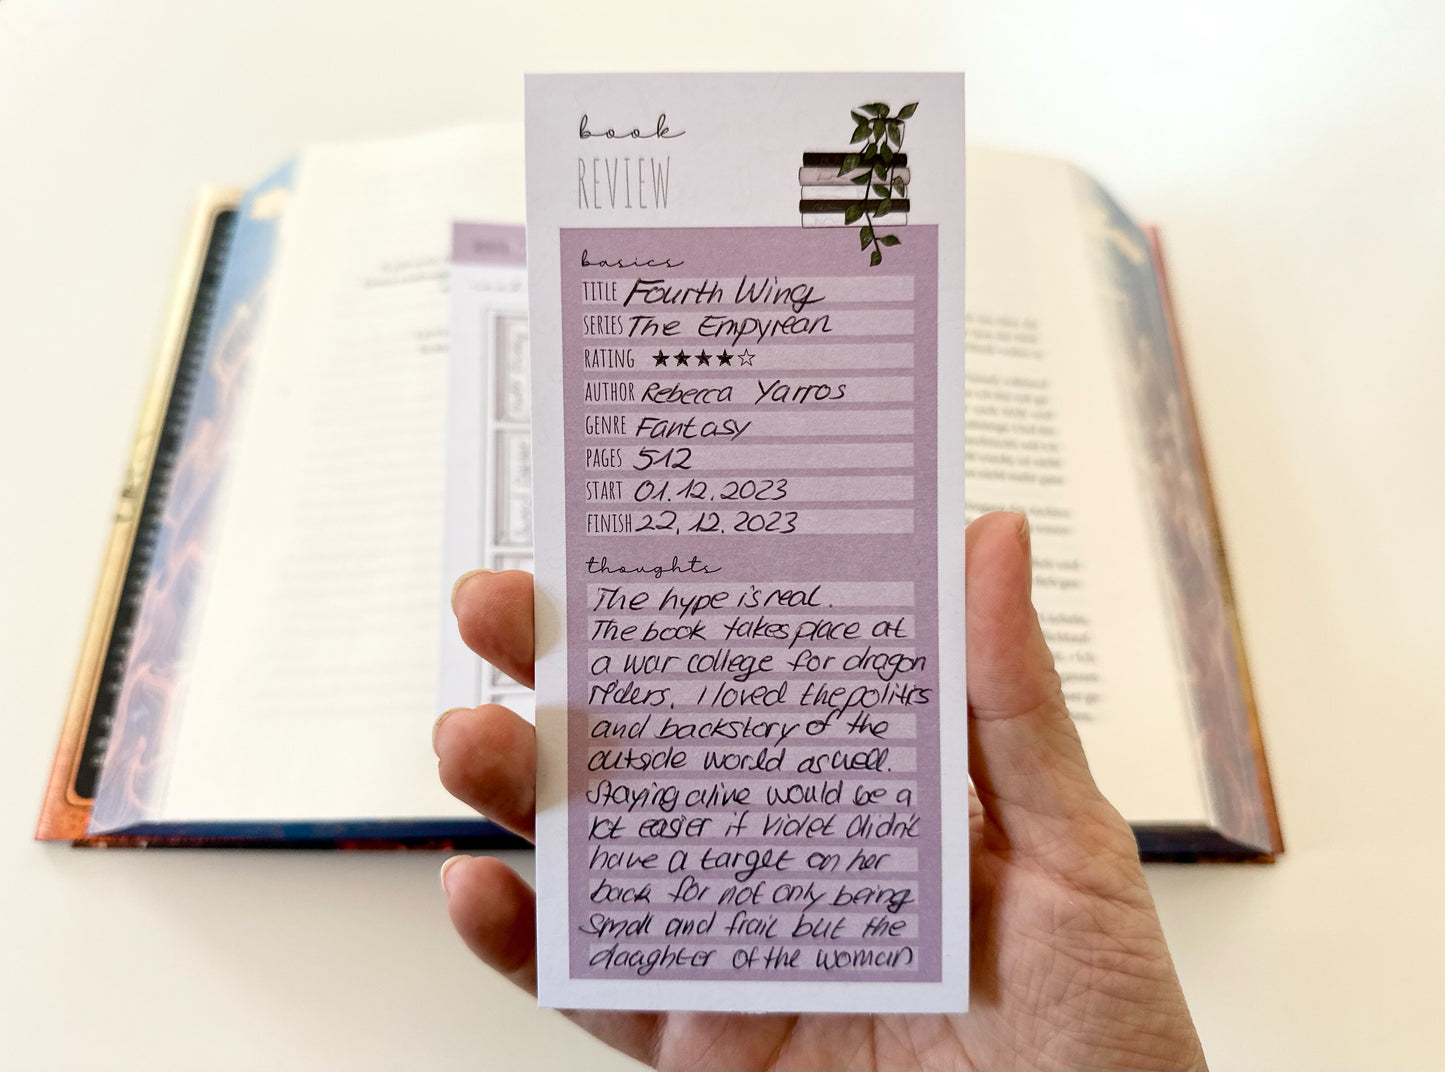 book
REVIEW
basics
TITLE Fourth Wing
SERIES The Empyrean
RATING ★★★★☆
AUTHOR Rebecca Yarros
GENRE Fantasy
PAGES 512
START 01.12.2023
FINISH 22.12.2023
thoughts
The hype is real.
The book takes place at
a war college for dragon
riders. I loved the politics
and backstory of the
outside world as well.
Staying alive would be a
lot easier if Violet didn't
have a target on her
back for not only being
small and frail but the
daughter of the woman